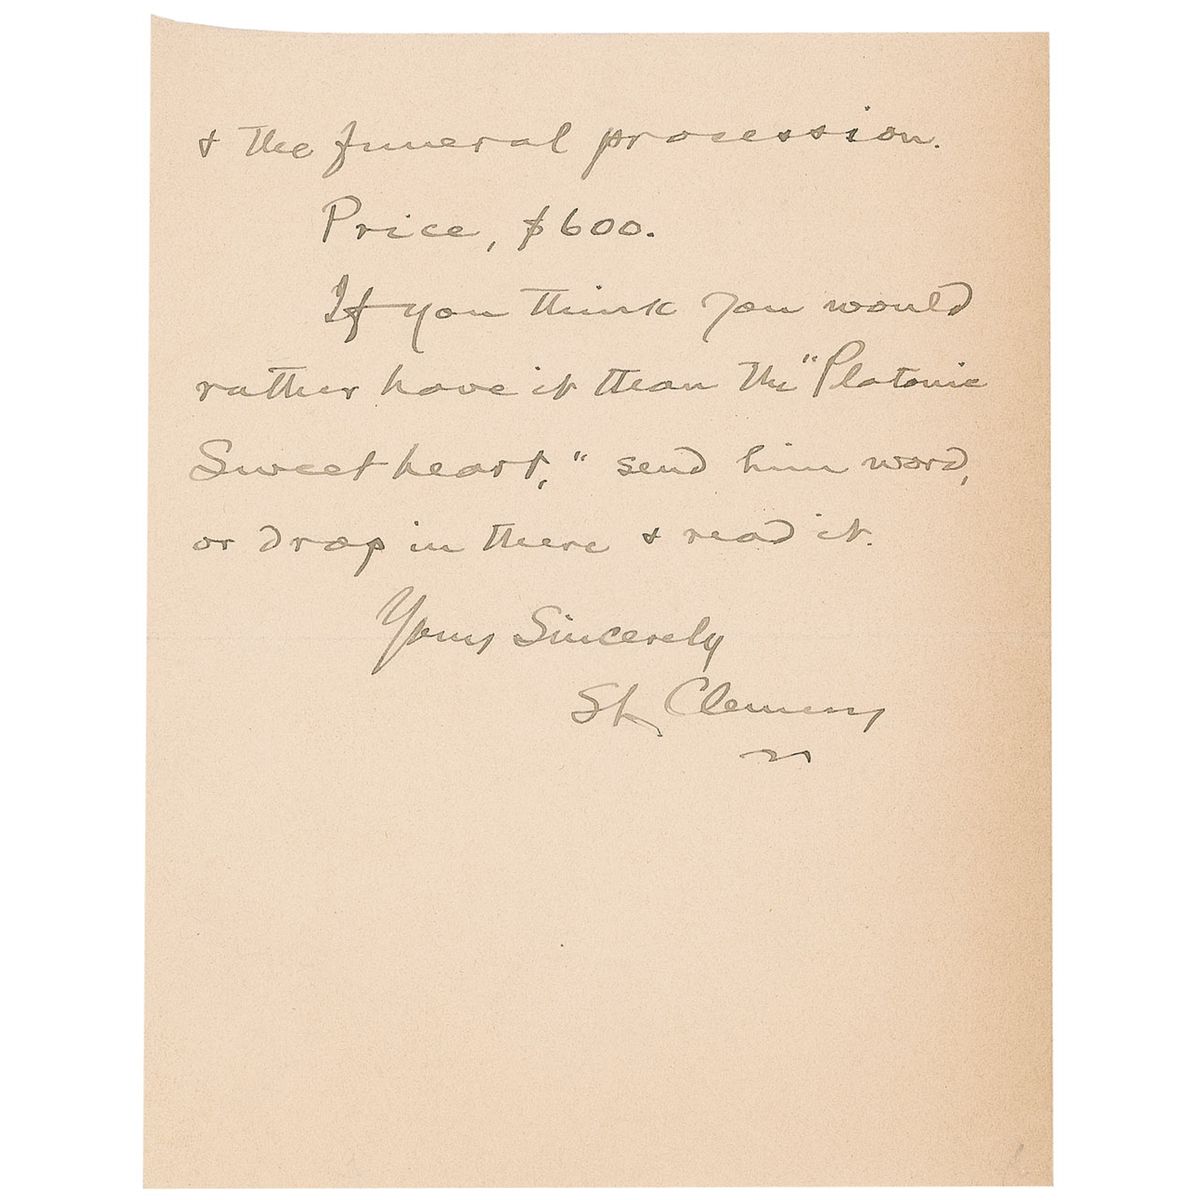 & the funeral procession.
Price, $600.
If you think you would
rather have it than the "Platonic
Sweetheart," send him word,
or drop in there & read it.
Yours Sincerely
SL Clemens